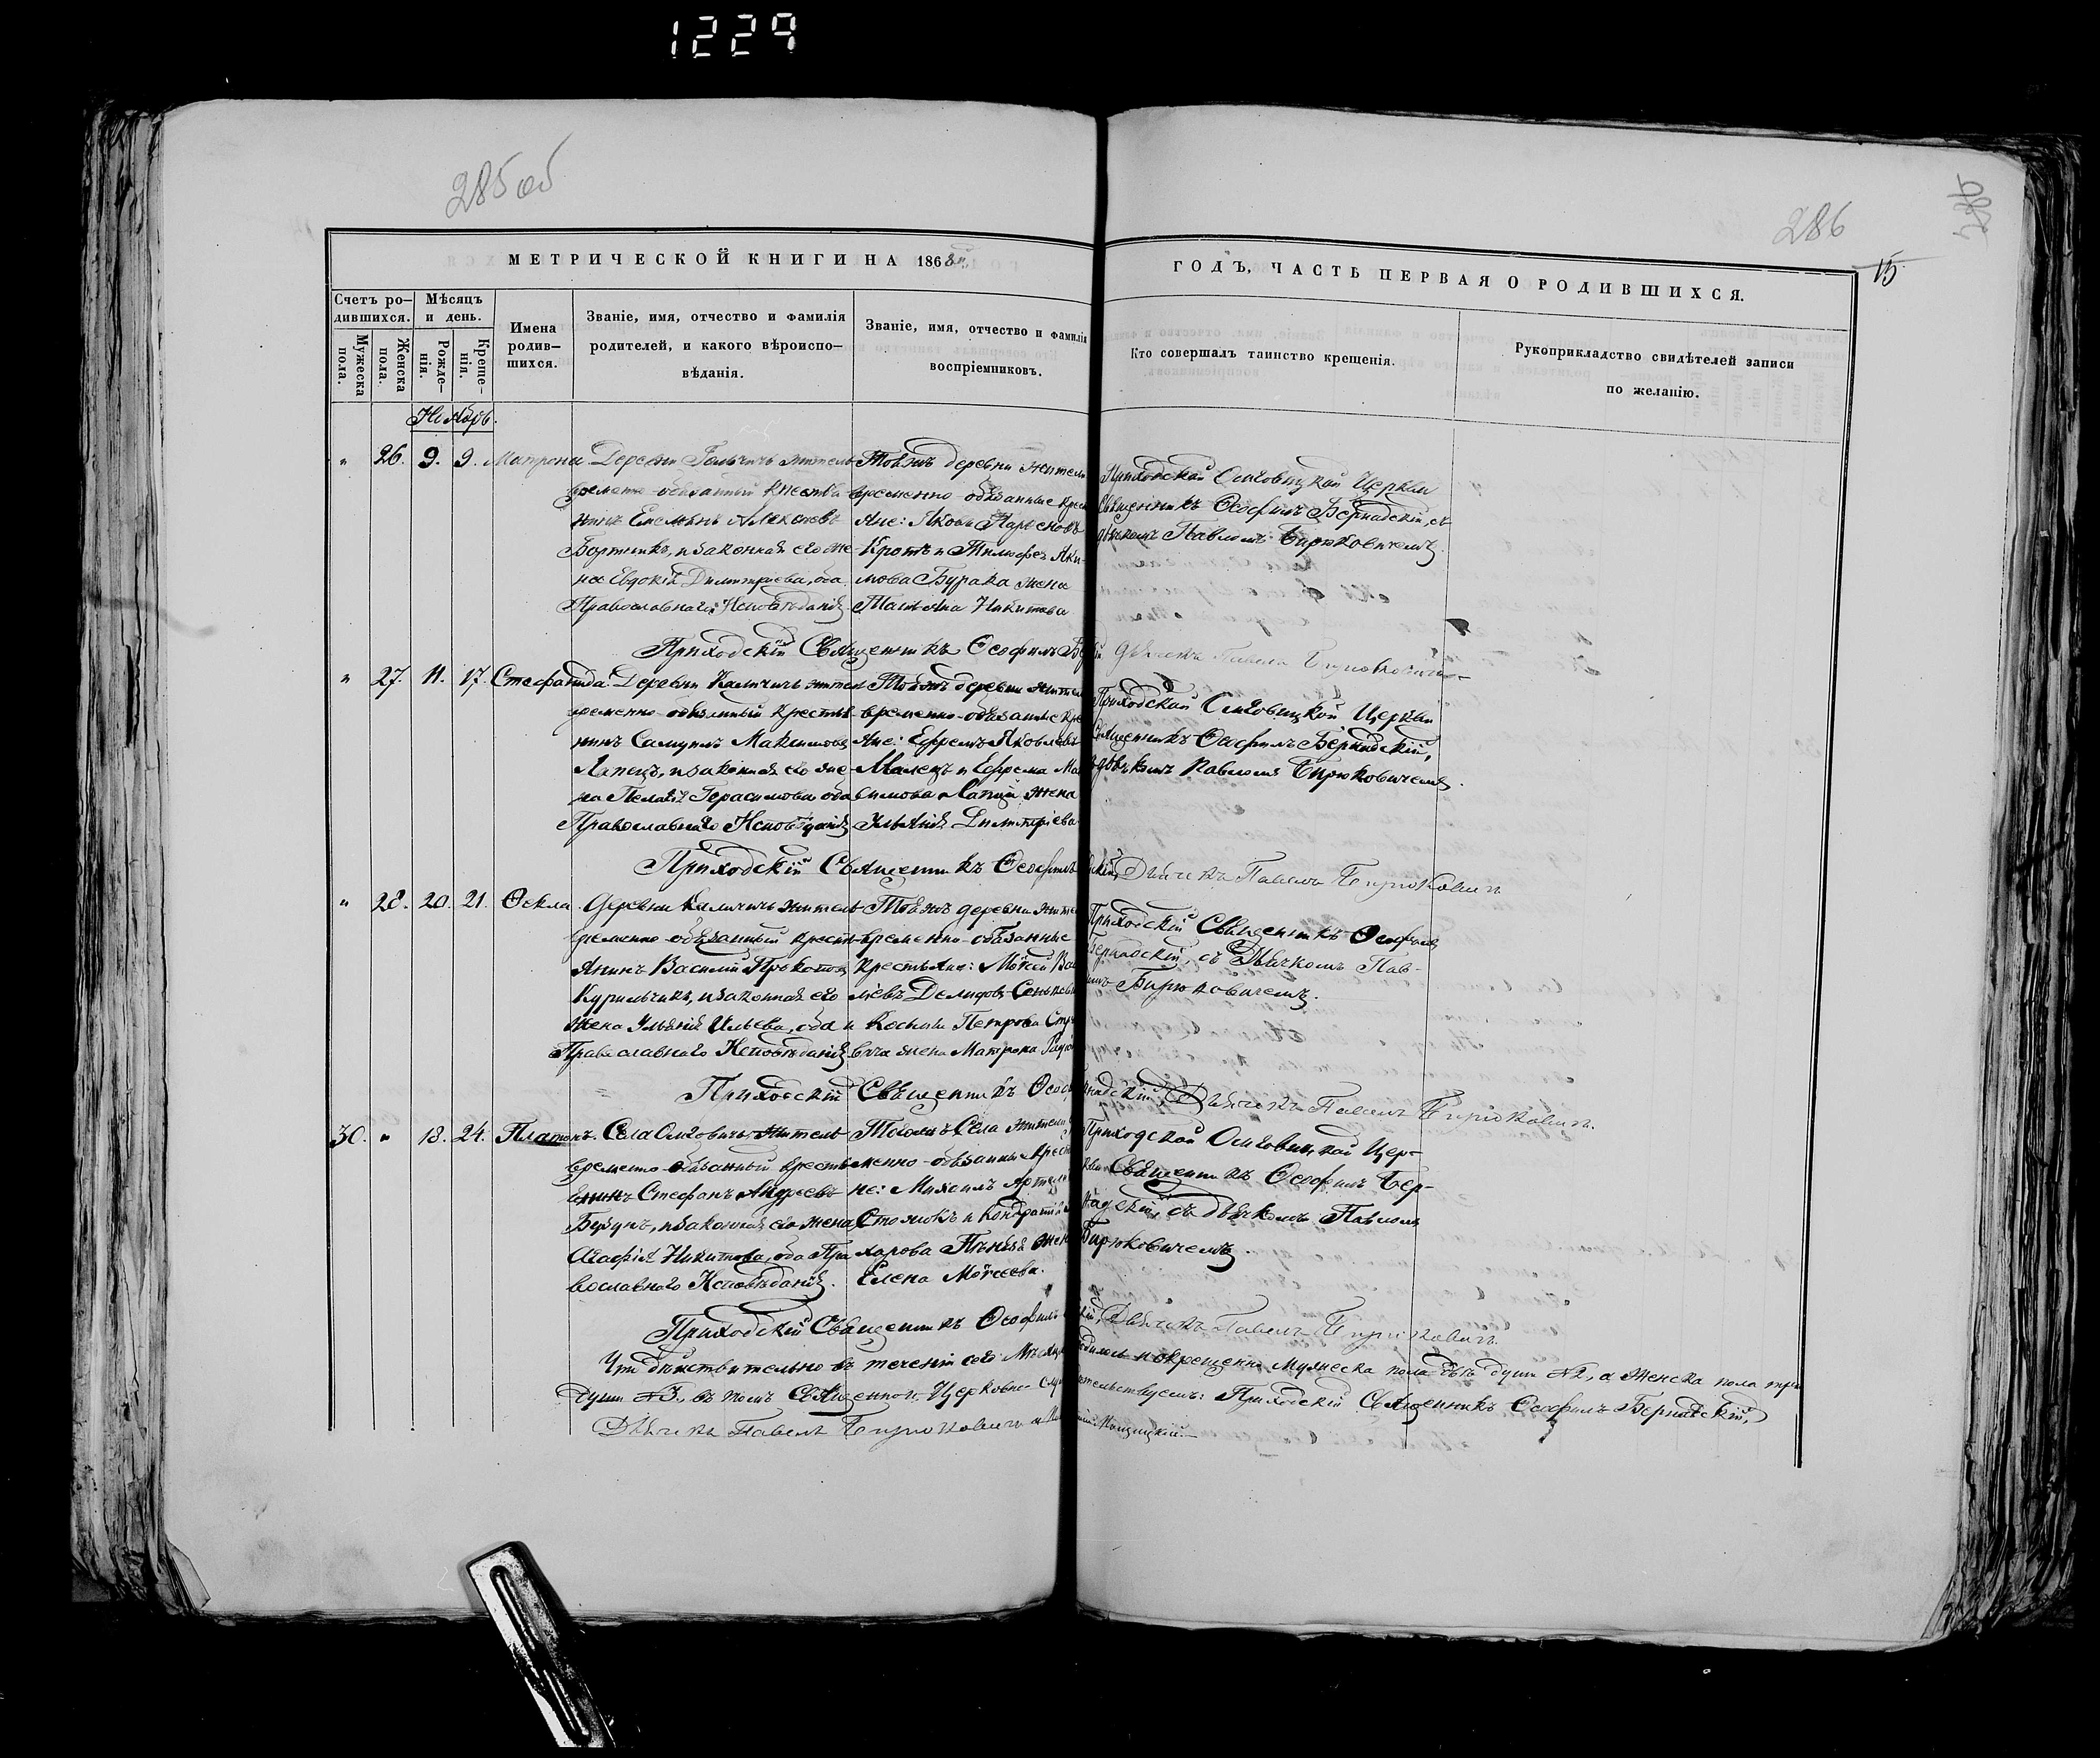 1229
285 об
286
286
15
МЕТРИЧЕСКОЙ КНИГИ НА 1868й
ГОДЪ, ЧАСТЬ ПЕРВАЯ О РОДИВШИХСЯ.
Счетъ ро-
дившихся.
Мужеска
пола.
Женска
пола.
Мѣсяцъ
и день.
Рожде-
нія.
Креще-
нія.
Имена
родив-
шихся.
Званіе, имя, отчество и фамилія
родителей, и какого вѣроиспо-
вѣданія.
Званіе, имя, отчество и фамилія
воспріемниковъ.
Кто совершалъ таинство крещенія.
Рукоприкладство свидѣтелей записи
по желанію.
Ноябрь.
" 26. 9. 9. Матрона
Деревни житель
временно-обязанный крестья
нинъ Емельянъ
Бортникъ, и законная его же-
на Евдокія Димитріева, оба
Православнаго Исповѣданія
Тойжъ деревни жители
временно-обязанные крес
яне: Яковъ Парѳеновъ
Кротъ и Тимоѳея Аки-
мова Бурака жена
Татьяна Никитова
Приходской Церкви
Священникъ Ѳеофилъ Бернадскій, съ
дьячкомъ Павломъ Бирюковичемъ.
Приходскій Священникъ Ѳеофилъ Дьячекъ Павелъ Бирюковичъ
" 27. 11. 17. Стефанида.
Деревни Каличъ житель
временно-обязанный крестья
нинъ Самуилъ Максимовъ
Лапецъ, и законная его же-
на Пелагія Герасимова оба
Православнаго Исповѣданія
Тойжъ деревни жители
временно-обязанные кре
яне: Ефремъ Яковлевъ
Малецъ и Ефрема Мак
симова Лапця жена
Ульянія Димитріева
Приходской Церкви
Священникъ Ѳеофилъ Бернадскій,
съ дьячкомъ Павломъ Бирюковичемъ.
Приходскій Священникъ Ѳеофилъ Дьячекъ Павелъ Бирюковичъ
" 28. 20. 21. Ѳекла.
Деревни Каличъ житель
временно-обязанный кресть
янинъ Василій Прокоповъ
Курильчикъ, и законная его
жена Ульянія Ильева, оба
Православнаго Исповѣданія
Тойжъ деревни жите
временно-обязанные
крестьяне: Мойсей
и Космы Петрова
вича жена Матрона
Приходскій Священникъ Ѳеофилъ
Бернадскій, съ Дьячкомъ Пав-
ломъ Бирюковичемъ.
Приходскій Священникъ Дьячекъ Павелъ Бирюковичъ.
30. " 18. 24. Платонъ.
Села житель
временно-обязанный кресть
янинъ Стефанъ Андреевъ
и законная его жена
Агафія Никитова, оба Пра
вославнаго Исповѣданія.
Тогожъ Села жители
менно-обязанны крестья
не: Михаилъ
и Кондратія
харова жена
Елена Мойсеева.
Приходской Цер-
кви Священникъ Ѳеофилъ Бер-
надскій, съ дьячкомъ Павломъ
Бирюковичемъ.
Приходскій Священникъ Ѳеофилъ Дьячекъ Павелъ Бирюковичъ.
Что дѣйствительно въ теченіи сего Мѣсяца родилось и окрещенно Мужеска пола двѣ души №2, а Женска пола три
души №3, въ томъ Священно и Церковно служительствуемъ: Приходскій Священникъ Ѳеофилъ Бернадскій,
Дьячекъ Павелъ Бирюковичъ и